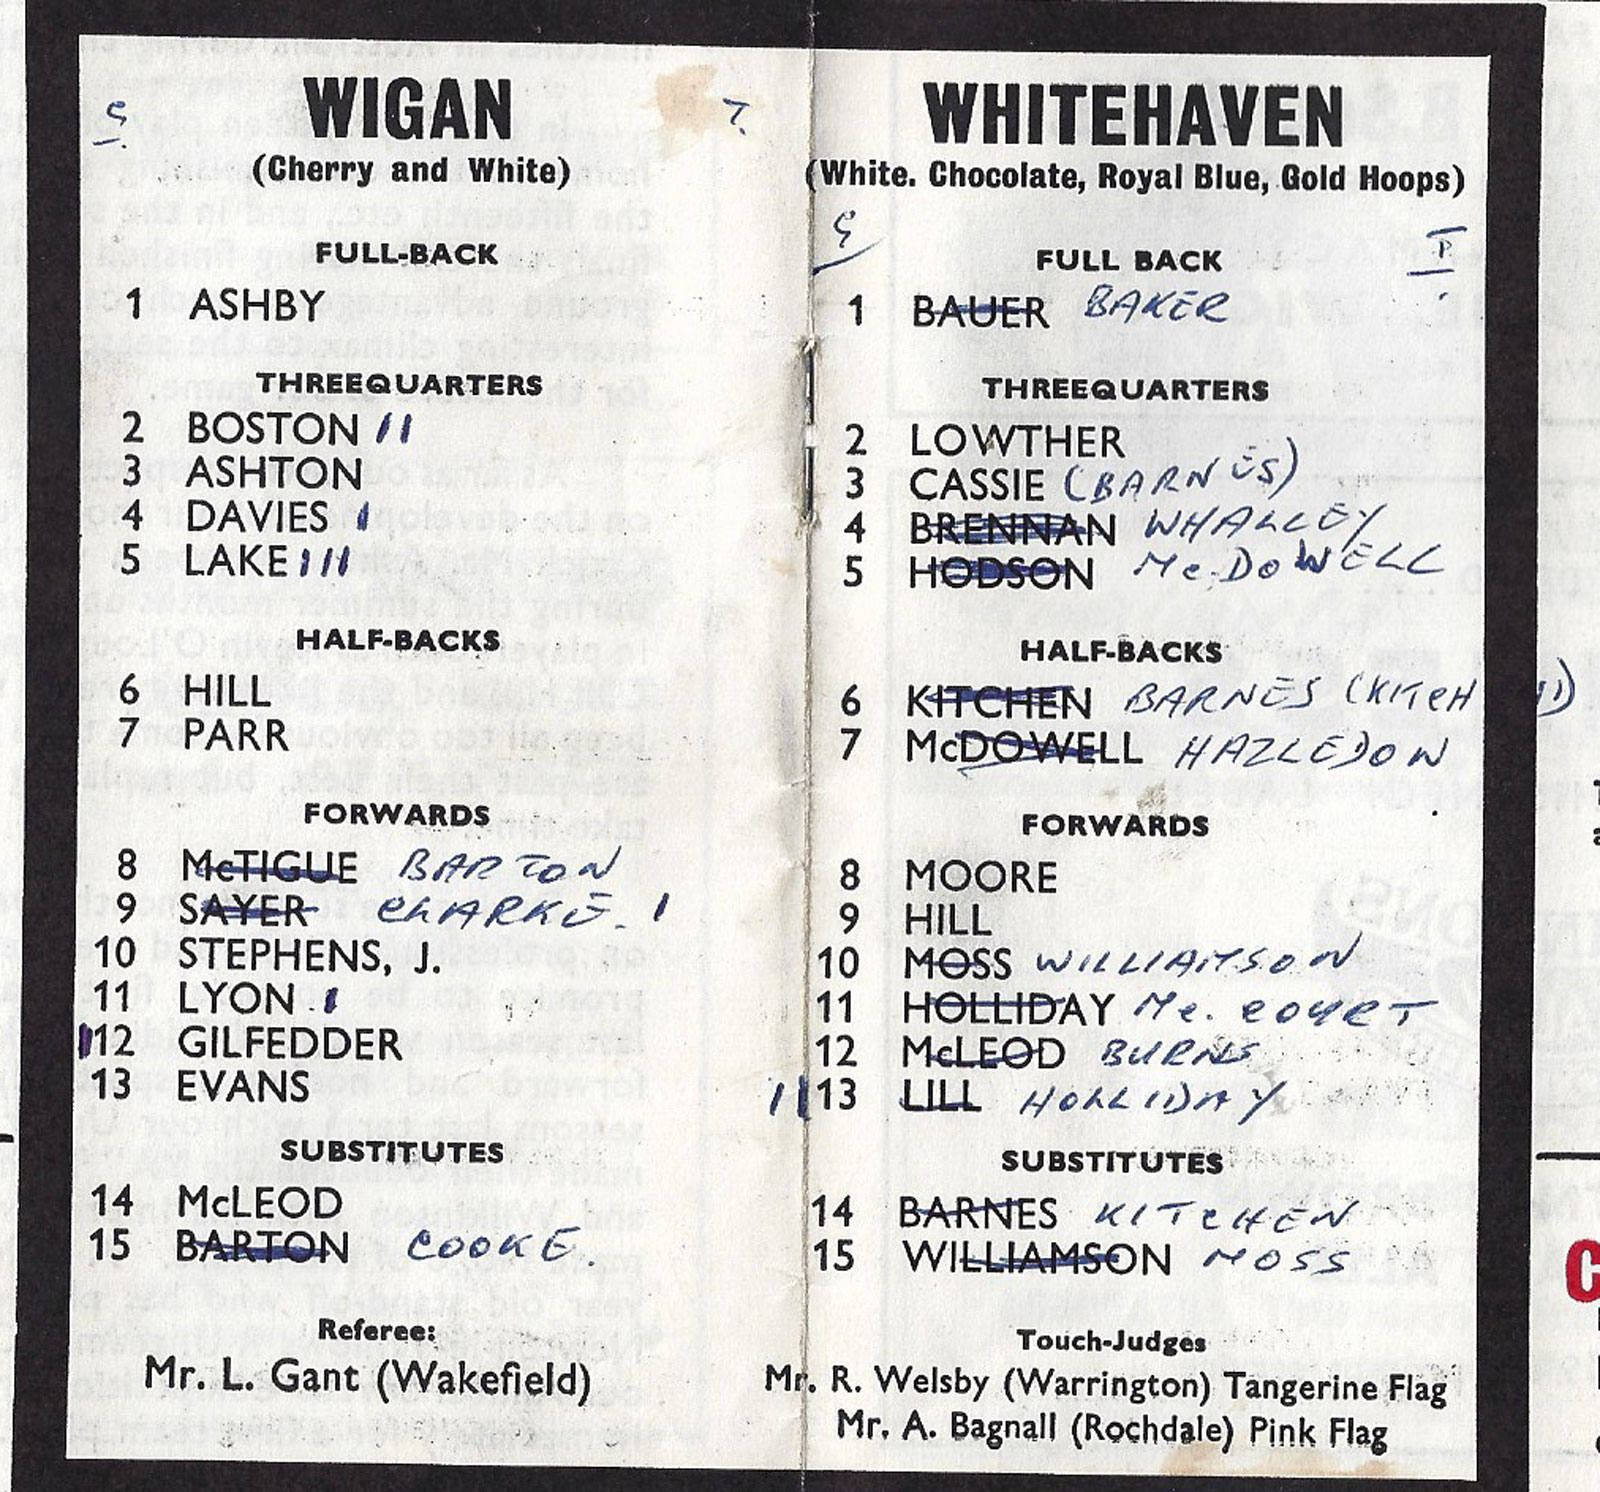 G. WIGAN T.
(Cherry and White)
FULL-BACK
1 ASHBY
THREEQUARTERS
2 BOSTON II
3 ASHTON
4 DAVIES I
5 LAKE III
HALF-BACKS
6 HILL
7 PARR
FORWARDS
8 McTIGUE BARTON
9 SAYER CLARKE. I
10 STEPHENS, J.
11 LYON I
I 12 GILFEDDER
13 EVANS
SUBSTITUTES
14 McLEOD
15 BARTON COOKE.
Referee:
Mr. L. Gant (Wakefield)
WHITEHAVEN
(White. Chocolate, Royal Blue, Gold Hoops)
G T
FULL BACK
1 BAUER BAKER
THREEQUARTERS
2 LOWTHER
3 CASSIE (BARNES)
4 BRENNAN WHALLEY
5 HODSON Mc.DOWELL
HALF-BACKS
6 KITCHEN BARNES
7 McDOWELL HAZLEDON
FORWARDS
8 MOORE
9 HILL
10 MOSS WILLIAMSON
11 HOLLIDAY Mc. COURT
12 McLEOD BURNS
II 13 LILL HOLLIDAY
SUBSTITUTES
14 BARNES KITCHEN
15 WILLIAMSON MOSS
Touch-Judges
Mr. R. Welsby (Warrington) Tangerine Flag
Mr. A. Bagnall (Rochdale) Pink Flag